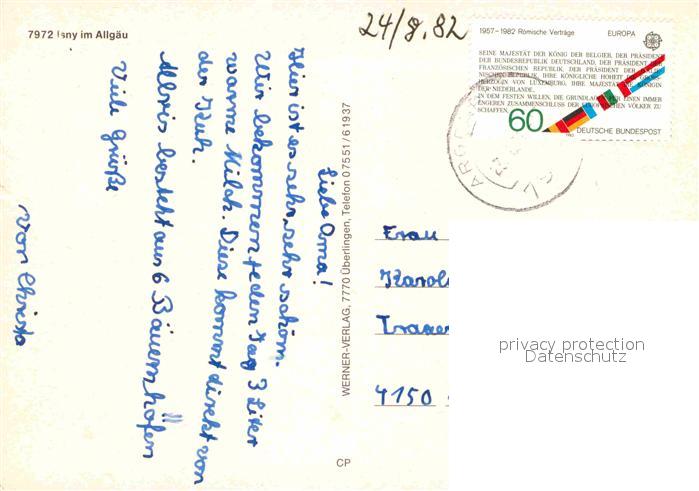 7972 Isny im Allgäu
24/8.82
1957-1982 Römische Verträge EUROPA
SEINE MAJESTÄT DER KÖNIG DER BELGIER, DER PRÄSIDENT
DER BUNDESREPUBLIK DEUTSCHLAND, DER PRÄSIDENT DER
FRANZÖSISCHEN REPUBLIK, DER PRÄSIDENT DER ITALIE-
NISCHEN REPUBLIK, IHRE KÖNIGLICHE HOHEIT DIE GROSS-
HERZOGIN VON LUXEMBURG, IHRE MAJESTÄT DIE KÖNIGIN
DER NIEDERLANDE,
IN DEM FESTEN WILLEN, DIE GRUNDLAGEN FÜR EINEN IMMER
ENGEREN ZUSAMMENSCHLUSS DER EUROPÄISCHEN VÖLKER ZU
SCHAFFEN
60
DEUTSCHE BUNDESPOST
Liebe Oma!
Hier ist es sehr, sehr schön.
Wir bekommen jeden Tag 3 Liter
warme Milch. Diese kommt direkt von
der Kuh.
Allris besteht aus 6 Bäuernhöfen
Viele Grüße
von Christa
WERNER-VERLAG, 7770 Überlingen, Telefon 07551/61937
CP
Frau
Karol
Traue
4150
privacy protection
Datenschutz